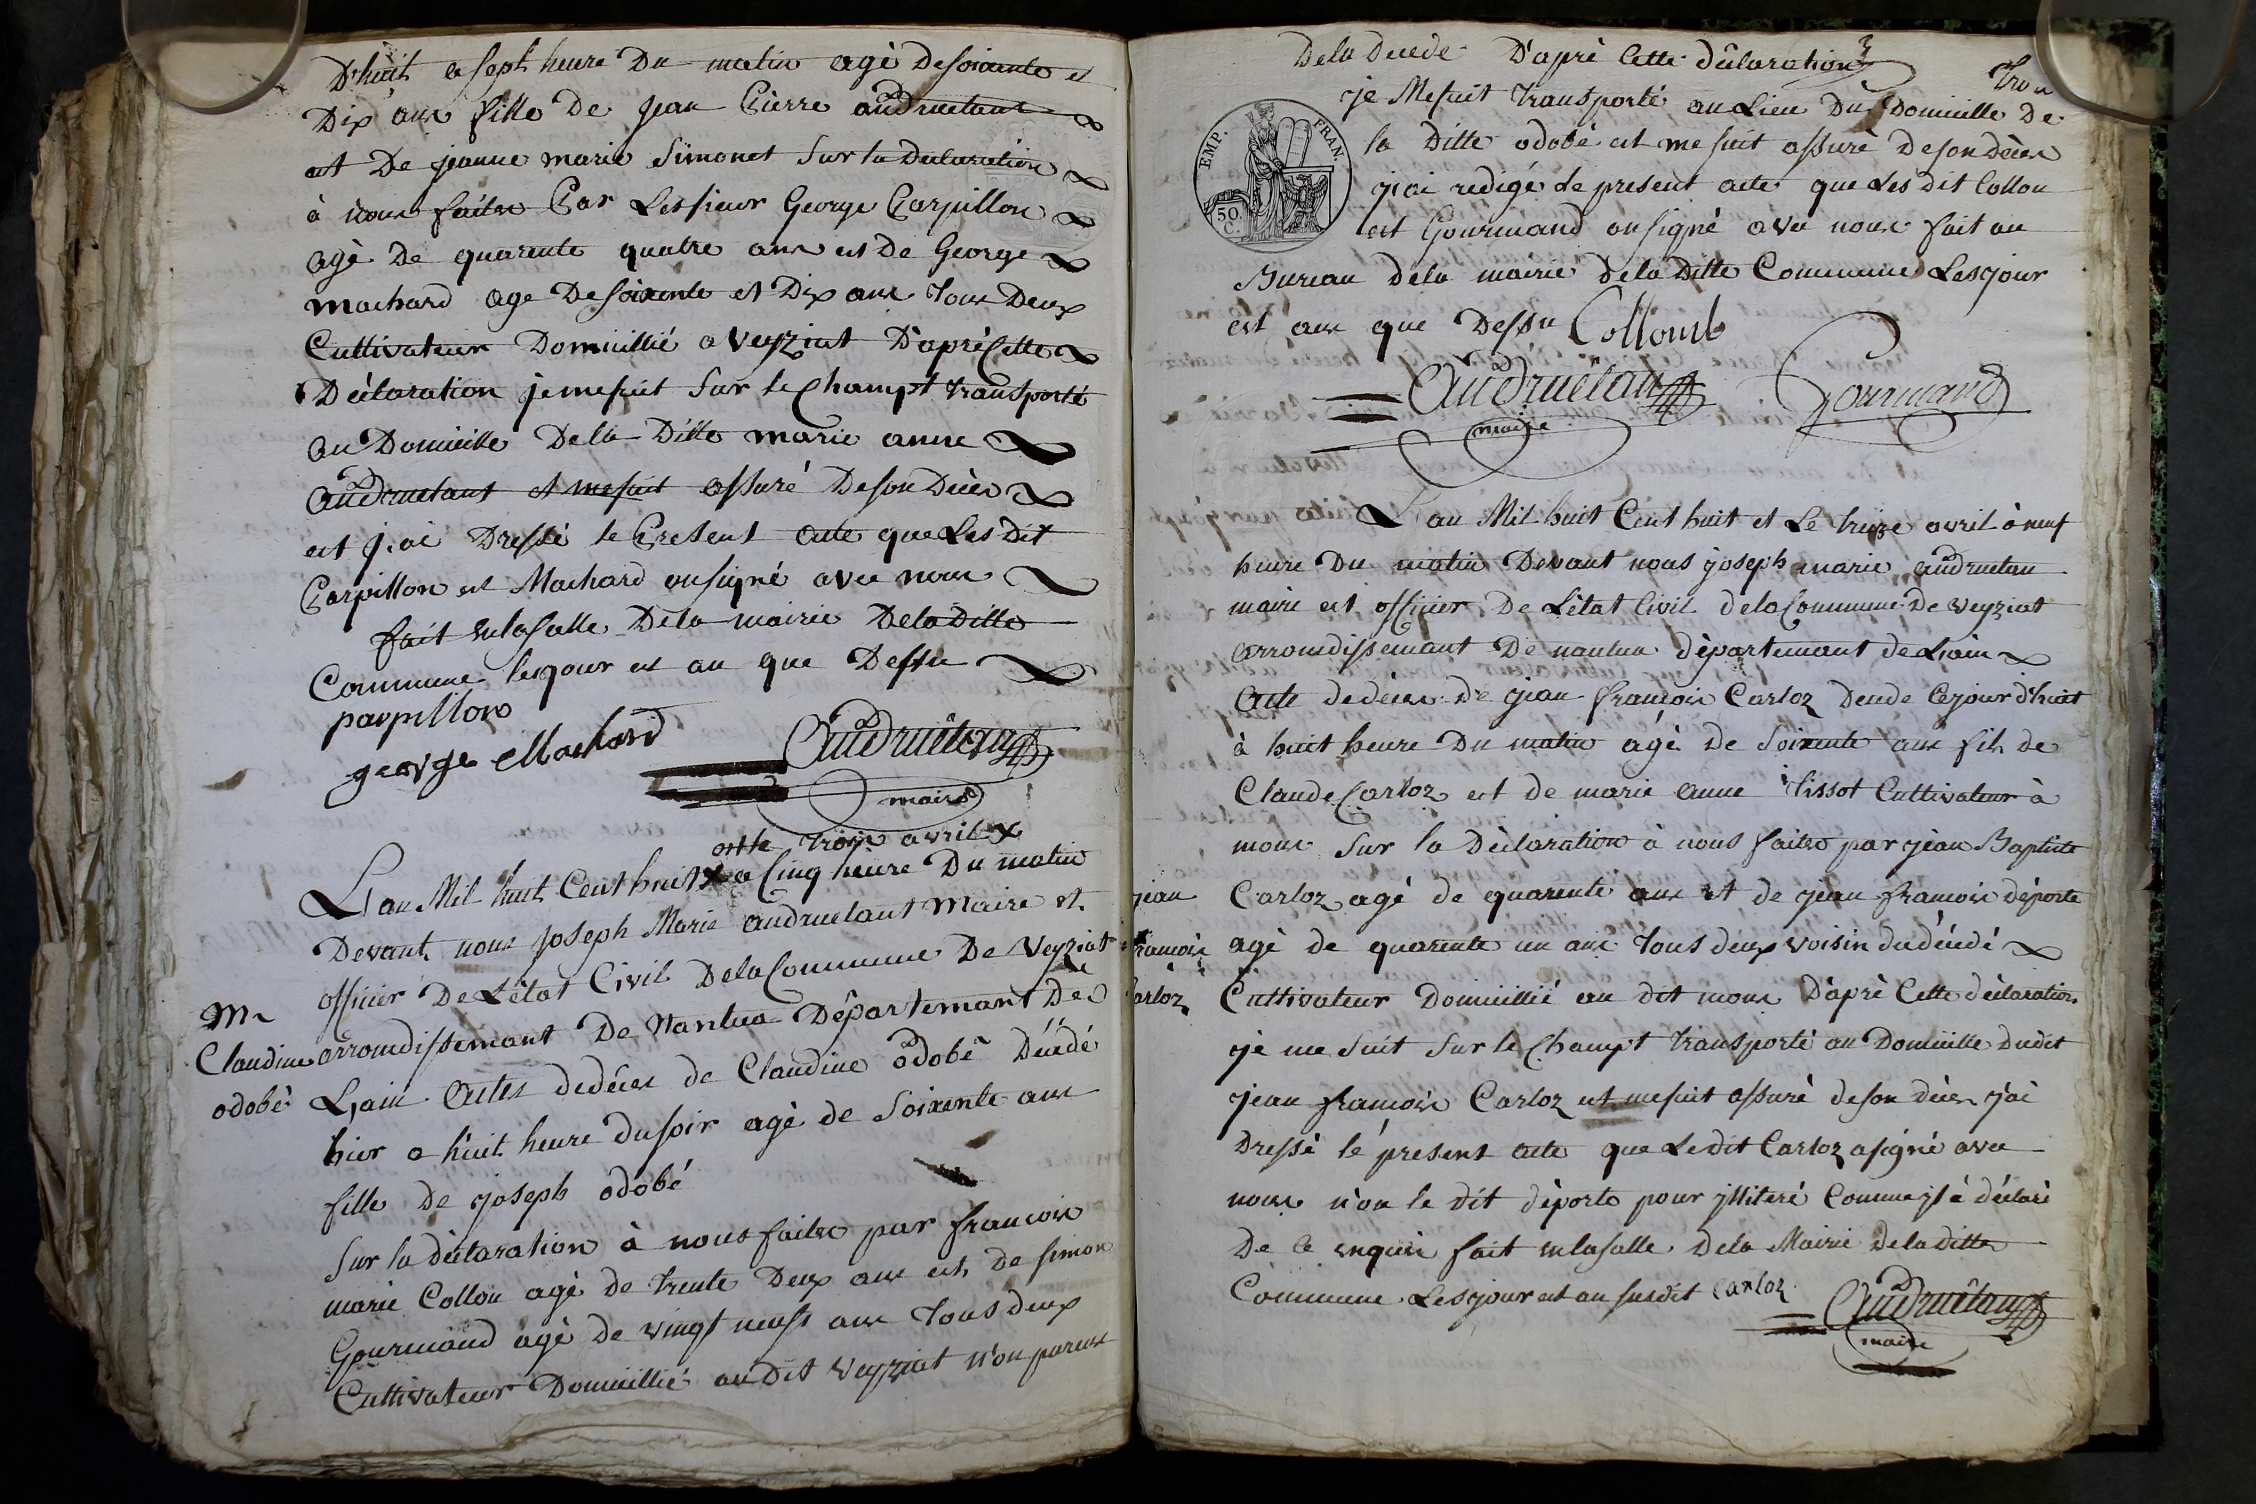 D'huit a sept heure Du matin agé de soixante et
Dix ans fille de Jean Pierre audruetant
et De jeanne marie Simonet sur la Declaration
à nous faites Par Les sieur George Parpillon
agé De quarente quatre ans et de George
machard age De soixente et Dix ans tous Deux
Cultivateur Domicillié a Veyziat D'aprè Cette
Déclaration je me suit sur le Champt transporté
au Domicille De la Ditte marie anne
audruetant et me suit assuré De son Décés
est j'ai Dressé le Present acte que Les dit
Parpillon est Machard on signé avec nous
fait en la salle De la mairie De la Ditte
Commune les jour et an que Dessu
parpillon
george Machard
Audruêtan
maire
et le trois avril x
L'an Mil huit Cent huit x a Cinq heure Du matin
Devant nous joseph Marie audruetant Maire et
officier De L'êtat Civil De la Commune De Veyziat
arrondissemant De Nantua Département De
L'ain Actes de décés de Claudine odobé Décédé
hier a huit heure du soir agé de Soixente ans
fille de joseph odobé
Sur la déclaration à nous faites par francois
marie Collon agé de trente Deux ans est de simon
Gourmand agé de vingt neuf ans tous deux
Cultivateur Domicillié au Dit Veyziat n'on parens
Mr
Claudine
odobé
De la Décédé D'aprè Cette déclaration
3
trois
je Me suit transporté au Lieu Du Domicille De
la Ditte odobé et me suit assuré De son Décés
j'ai redigé le present acte que Les dit Collon
est Gourmand on signé avec nous fait au
Bureau de la mairie de la Ditte Commune Les jour
est ans que Dessu Collomb
EMP. FRAN.
50 C.
Audruêtan
Gourmand
maire
L'an Mil huit Cent huit et Le treize avril à neuf
heure Du matin Devant nous joseph marie audruetan
maire est officier De L'état Civil de la Commune De Veyziat
arrondissemant De nantua département de L'ain
Acte de décés de jean françois Carloz Décédé Ce jour d'huit
à huit heure Du matin agé de Soixente ans fils de
Claude Carloz est de marie anne tissot Cultivateur à
mons sur la Déclaration à nous faites par jean Baptiste
Carloz agé de quarente ans et de jean francois déporte
agé de quarente un ans tous deux voisin du décédé
Cultivateur Domicillié au dit mons D'aprè Cette déclaration
je me suit sur le Champt transporté au Domicille du dit
jean francois Carloz et me suit assuré de son décés j'ai
Dressé le present acte que Le dit Carloz a signé avec
nous n'on le dit déporte pour illiteré Comme il à déclaré
De ce enquis fait en la salle de la Mairie de la Ditte
Commune Les jour et an susdit Carloz
Audruêtan
maire
jean
francois
Carloz